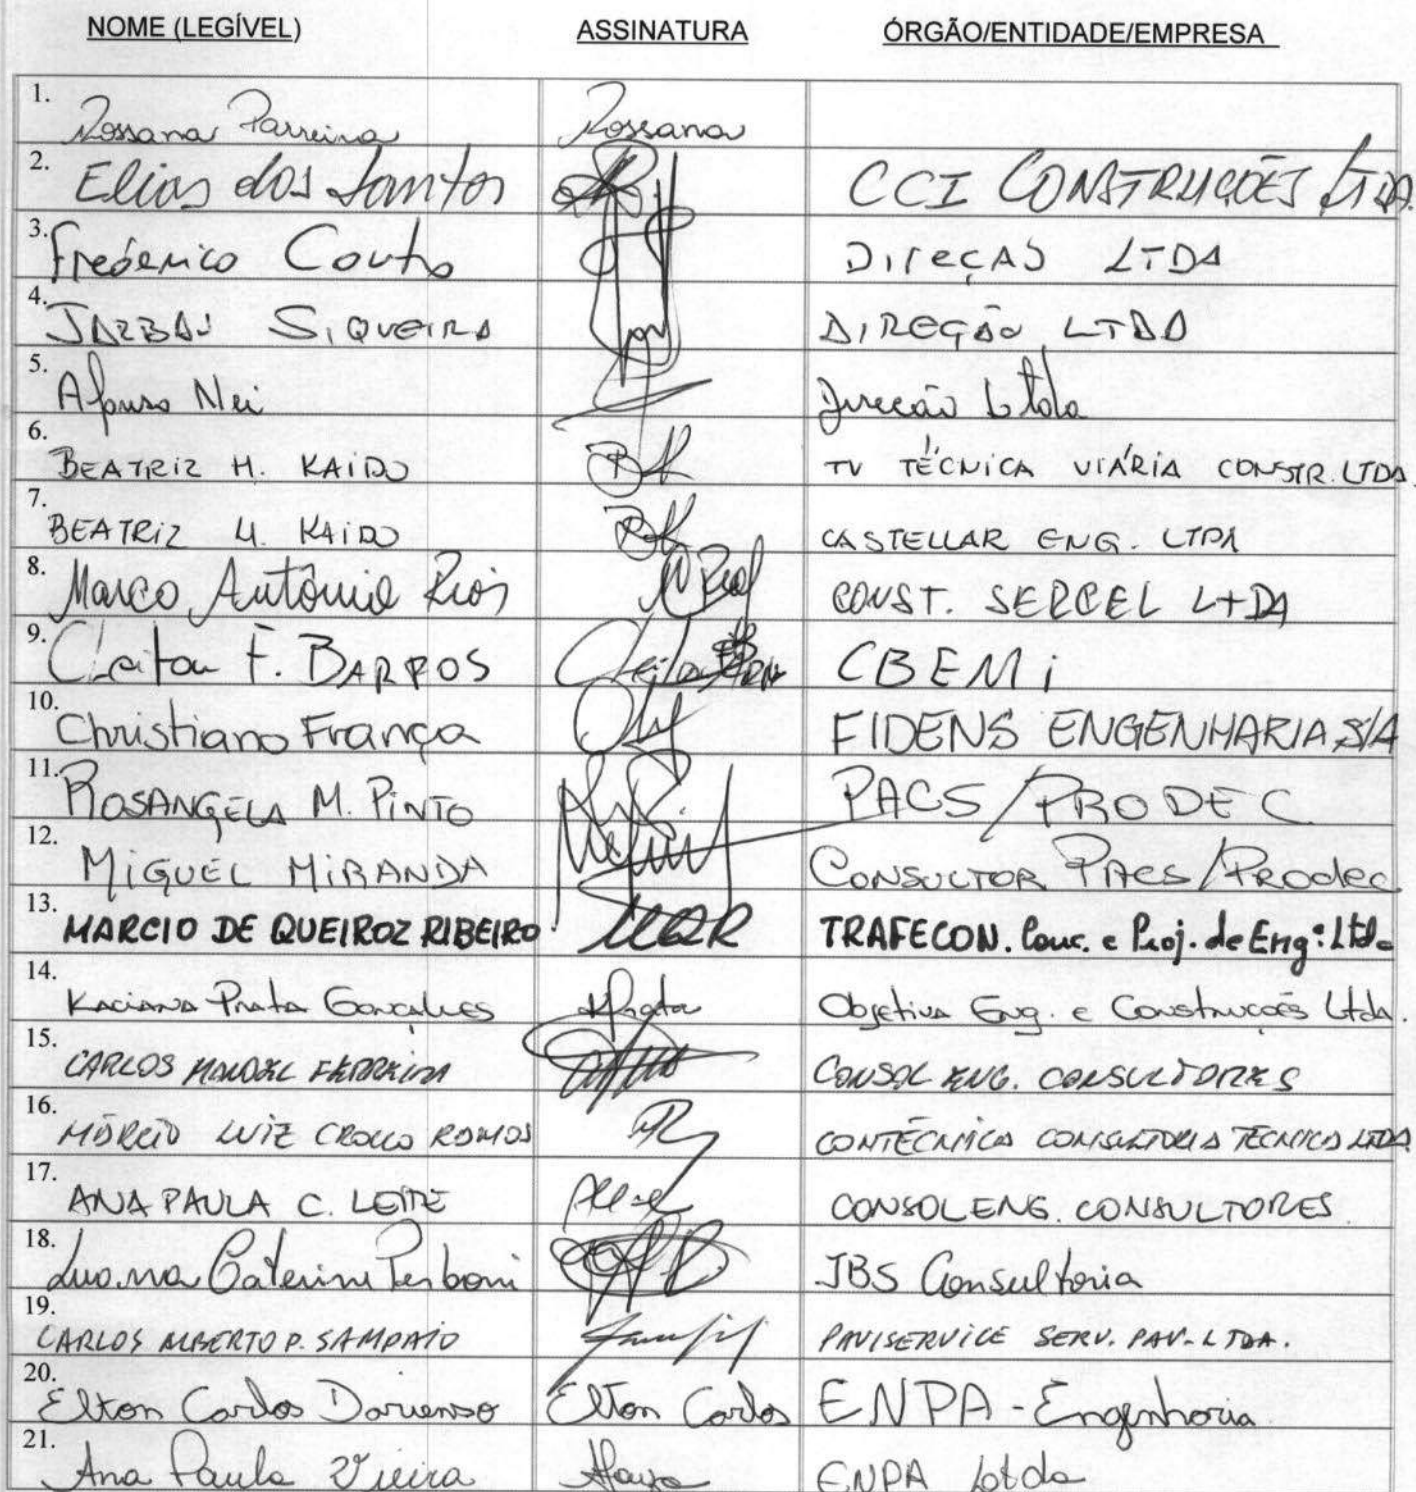 NOME (LEGÍVEL) ASSINATURA ÓRGÃO/ENTIDADE/EMPRESA
1. Rossana Parreira Rossana
2. Elias dos Santos CCI CONSTRUÇÕES LTDA
3. Frederico Couto DIREÇÃO LTDA
4. JAZBAS SIQUEIRA DIREÇÃO LTDA
5. Afonso Nei Direção Ltda
6. BEATRIZ H. KAIDO BK TV TÉCNICA VIÁRIA CONSTR. LTDA.
7. BEATRIZ H. KAIDO BK CASTELLAR ENG. LTDA
8. Marco Antônio Rios CONST. SERCEL LTDA
9. Cleiton F. BARROS CBEMi
10. Christiano França FIDENS ENGENHARIA S/A
11. ROSANGELA M. PINTO PACS/PRODEC
12. MIGUEL MIRANDA CONSULTOR PACS/Prodec
13. MARCIO DE QUEIROZ RIBEIRO. MQR TRAFECON. Conc. e Proj. de Engª Ltda
14. Kaciana Prata Gonçalves KPrata Objetiva Eng. e Construções Ltda.
15. CARLOS MANOEL FERREIRA CONSOL ENG. CONSULTORES
16. MÁRCIO LUIZ ROMOS CONTÉCNICA CONSULTORIA TÉCNICA LTDA
17. ANA PAULA C. LEITE CONSOL ENG. CONSULTORES
18. Luanna Caterine JBS Consultoria
19. CARLOS ALBERTO P. SAMPAIO PAVISERVICE SERV. PAV. LTDA.
20. Elton Carlos Darienso Elton Carlos ENPA - Engenharia
21. Ana Paula Vieira ENPA Ltda